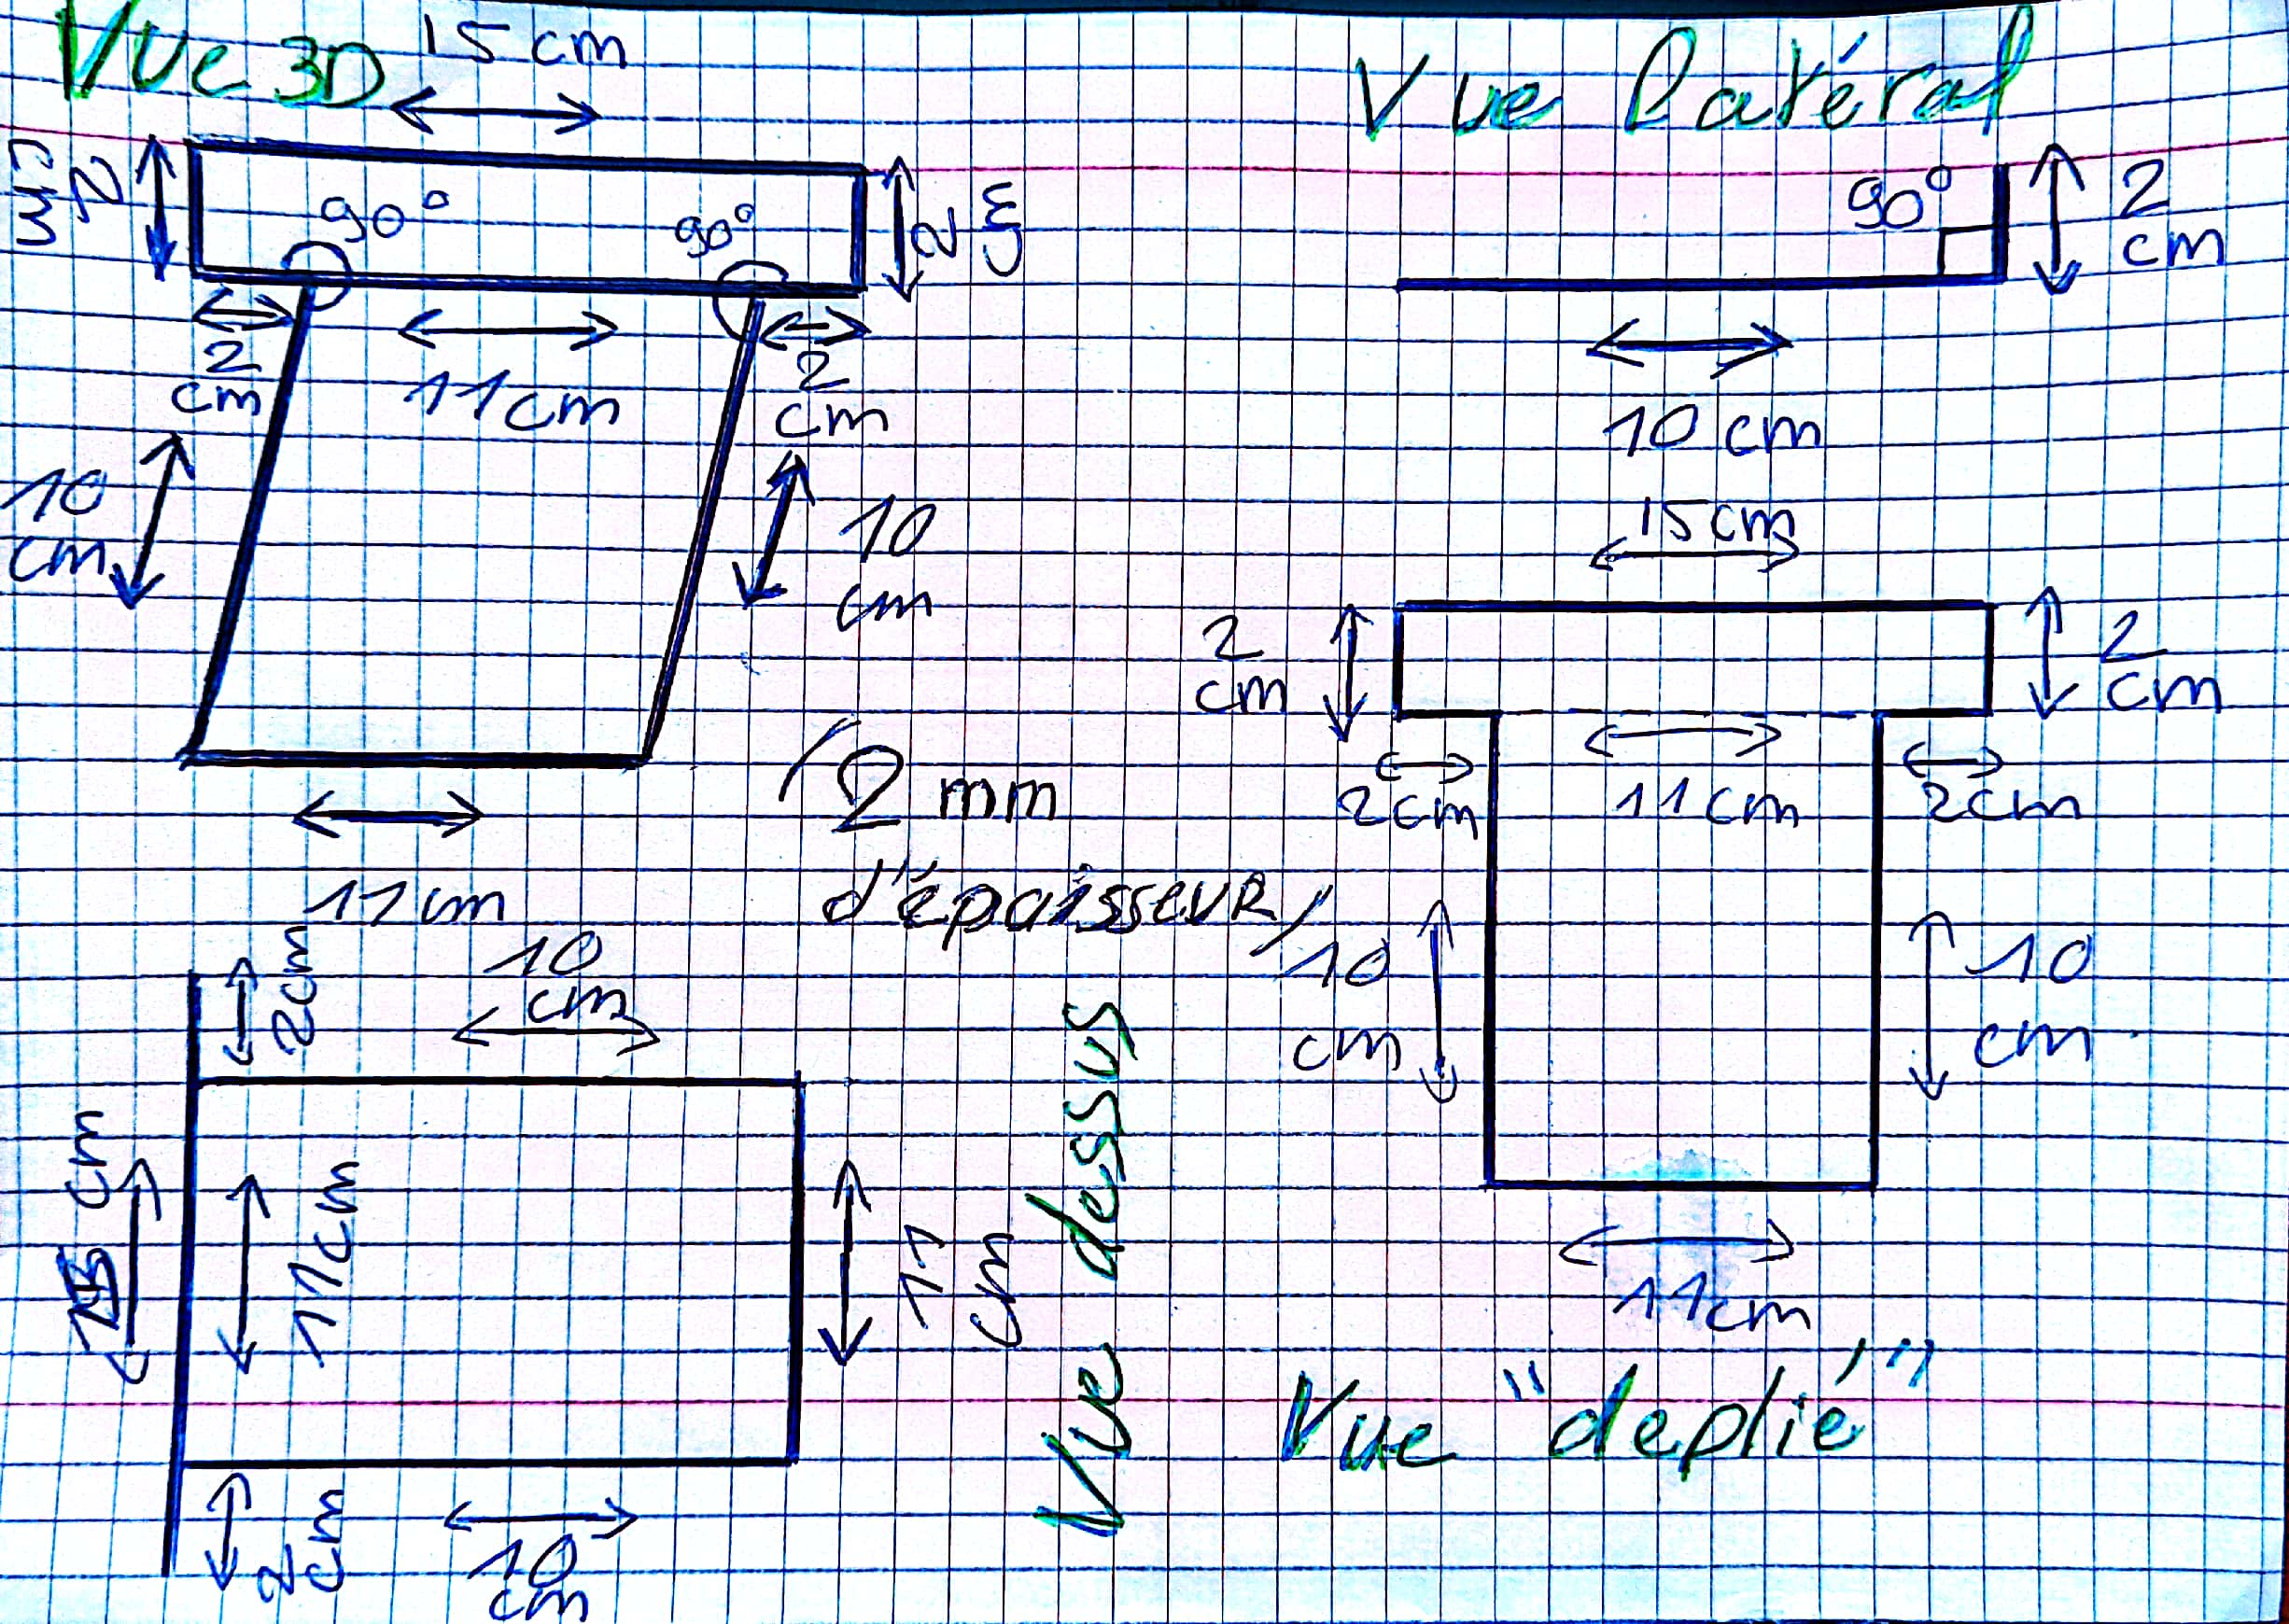 Vue 3D
15 cm
2
cm
90°
90°
2
cm
2
cm
11 cm
2
cm
10
cm
10
cm
11 cm
(2 mm
d'épaisseur)
Vue latéral
90°
2
cm
10 cm
15 cm
2
cm
2
cm
2cm
11 cm
2cm
10
cm
10
cm
11 cm
Vue "deplié"
2cm
10
cm
cm
11 cm
11
cm
2
cm
10
cm
Vue dessus